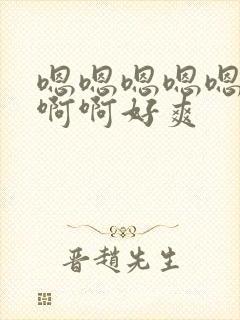 嗯嗯嗯嗯嗯
啊啊好爽
晋趙先生